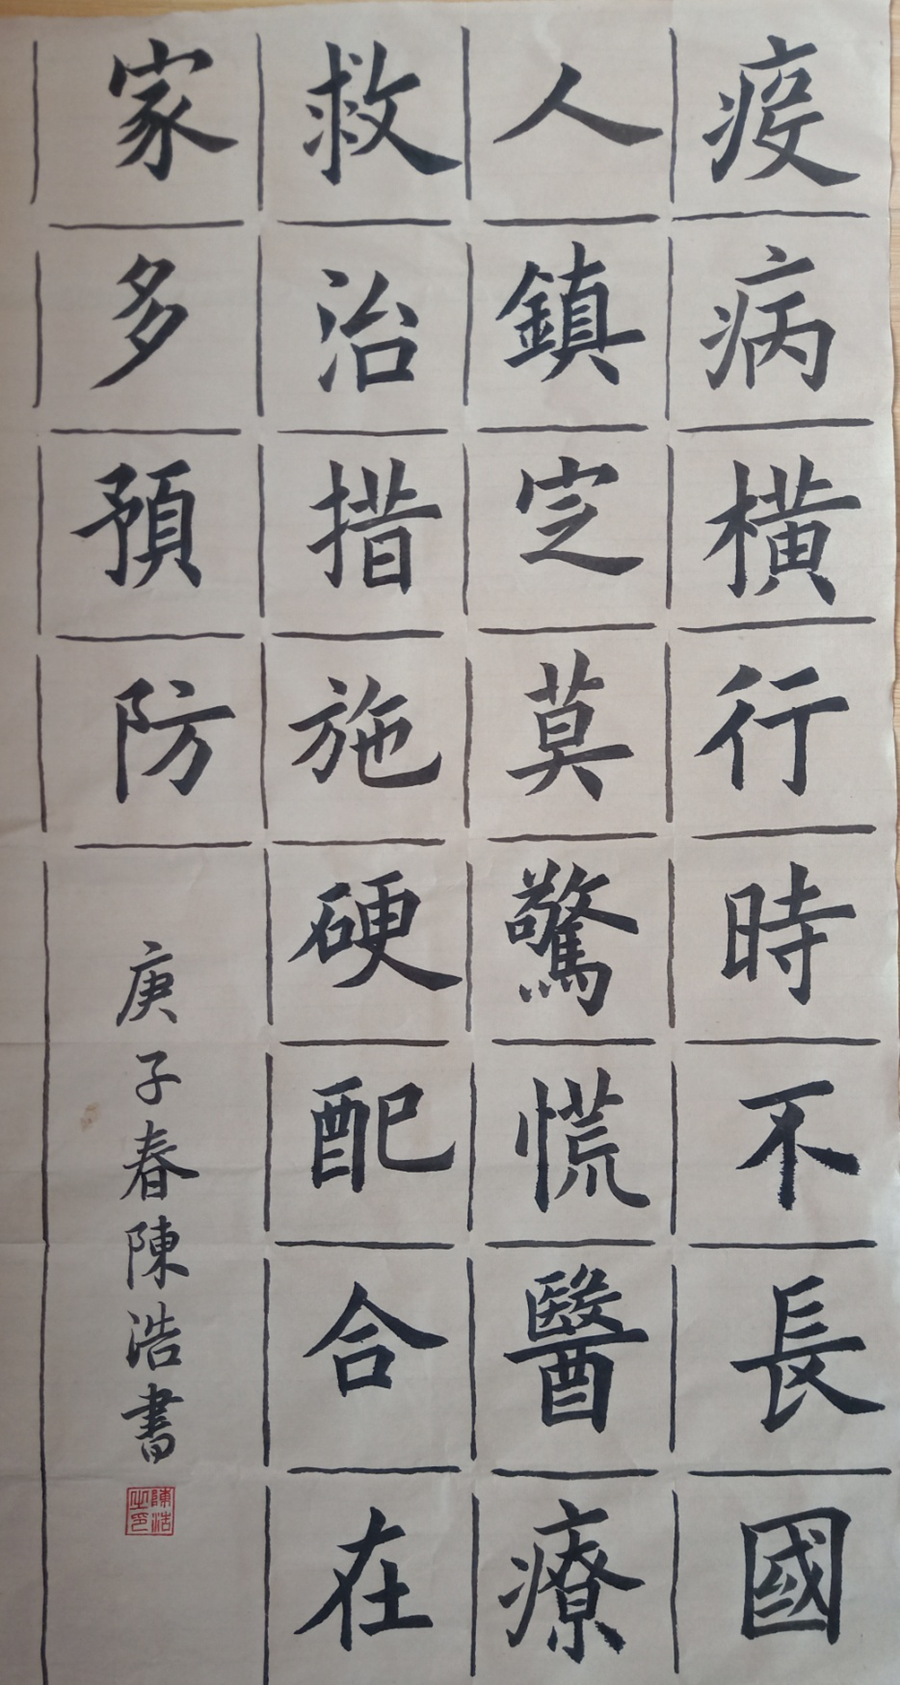 疫病橫行時不長國
人鎮定莫驚慌醫療
救治措施硬配合在
家多預防
庚子春陳浩書
陳浩之印